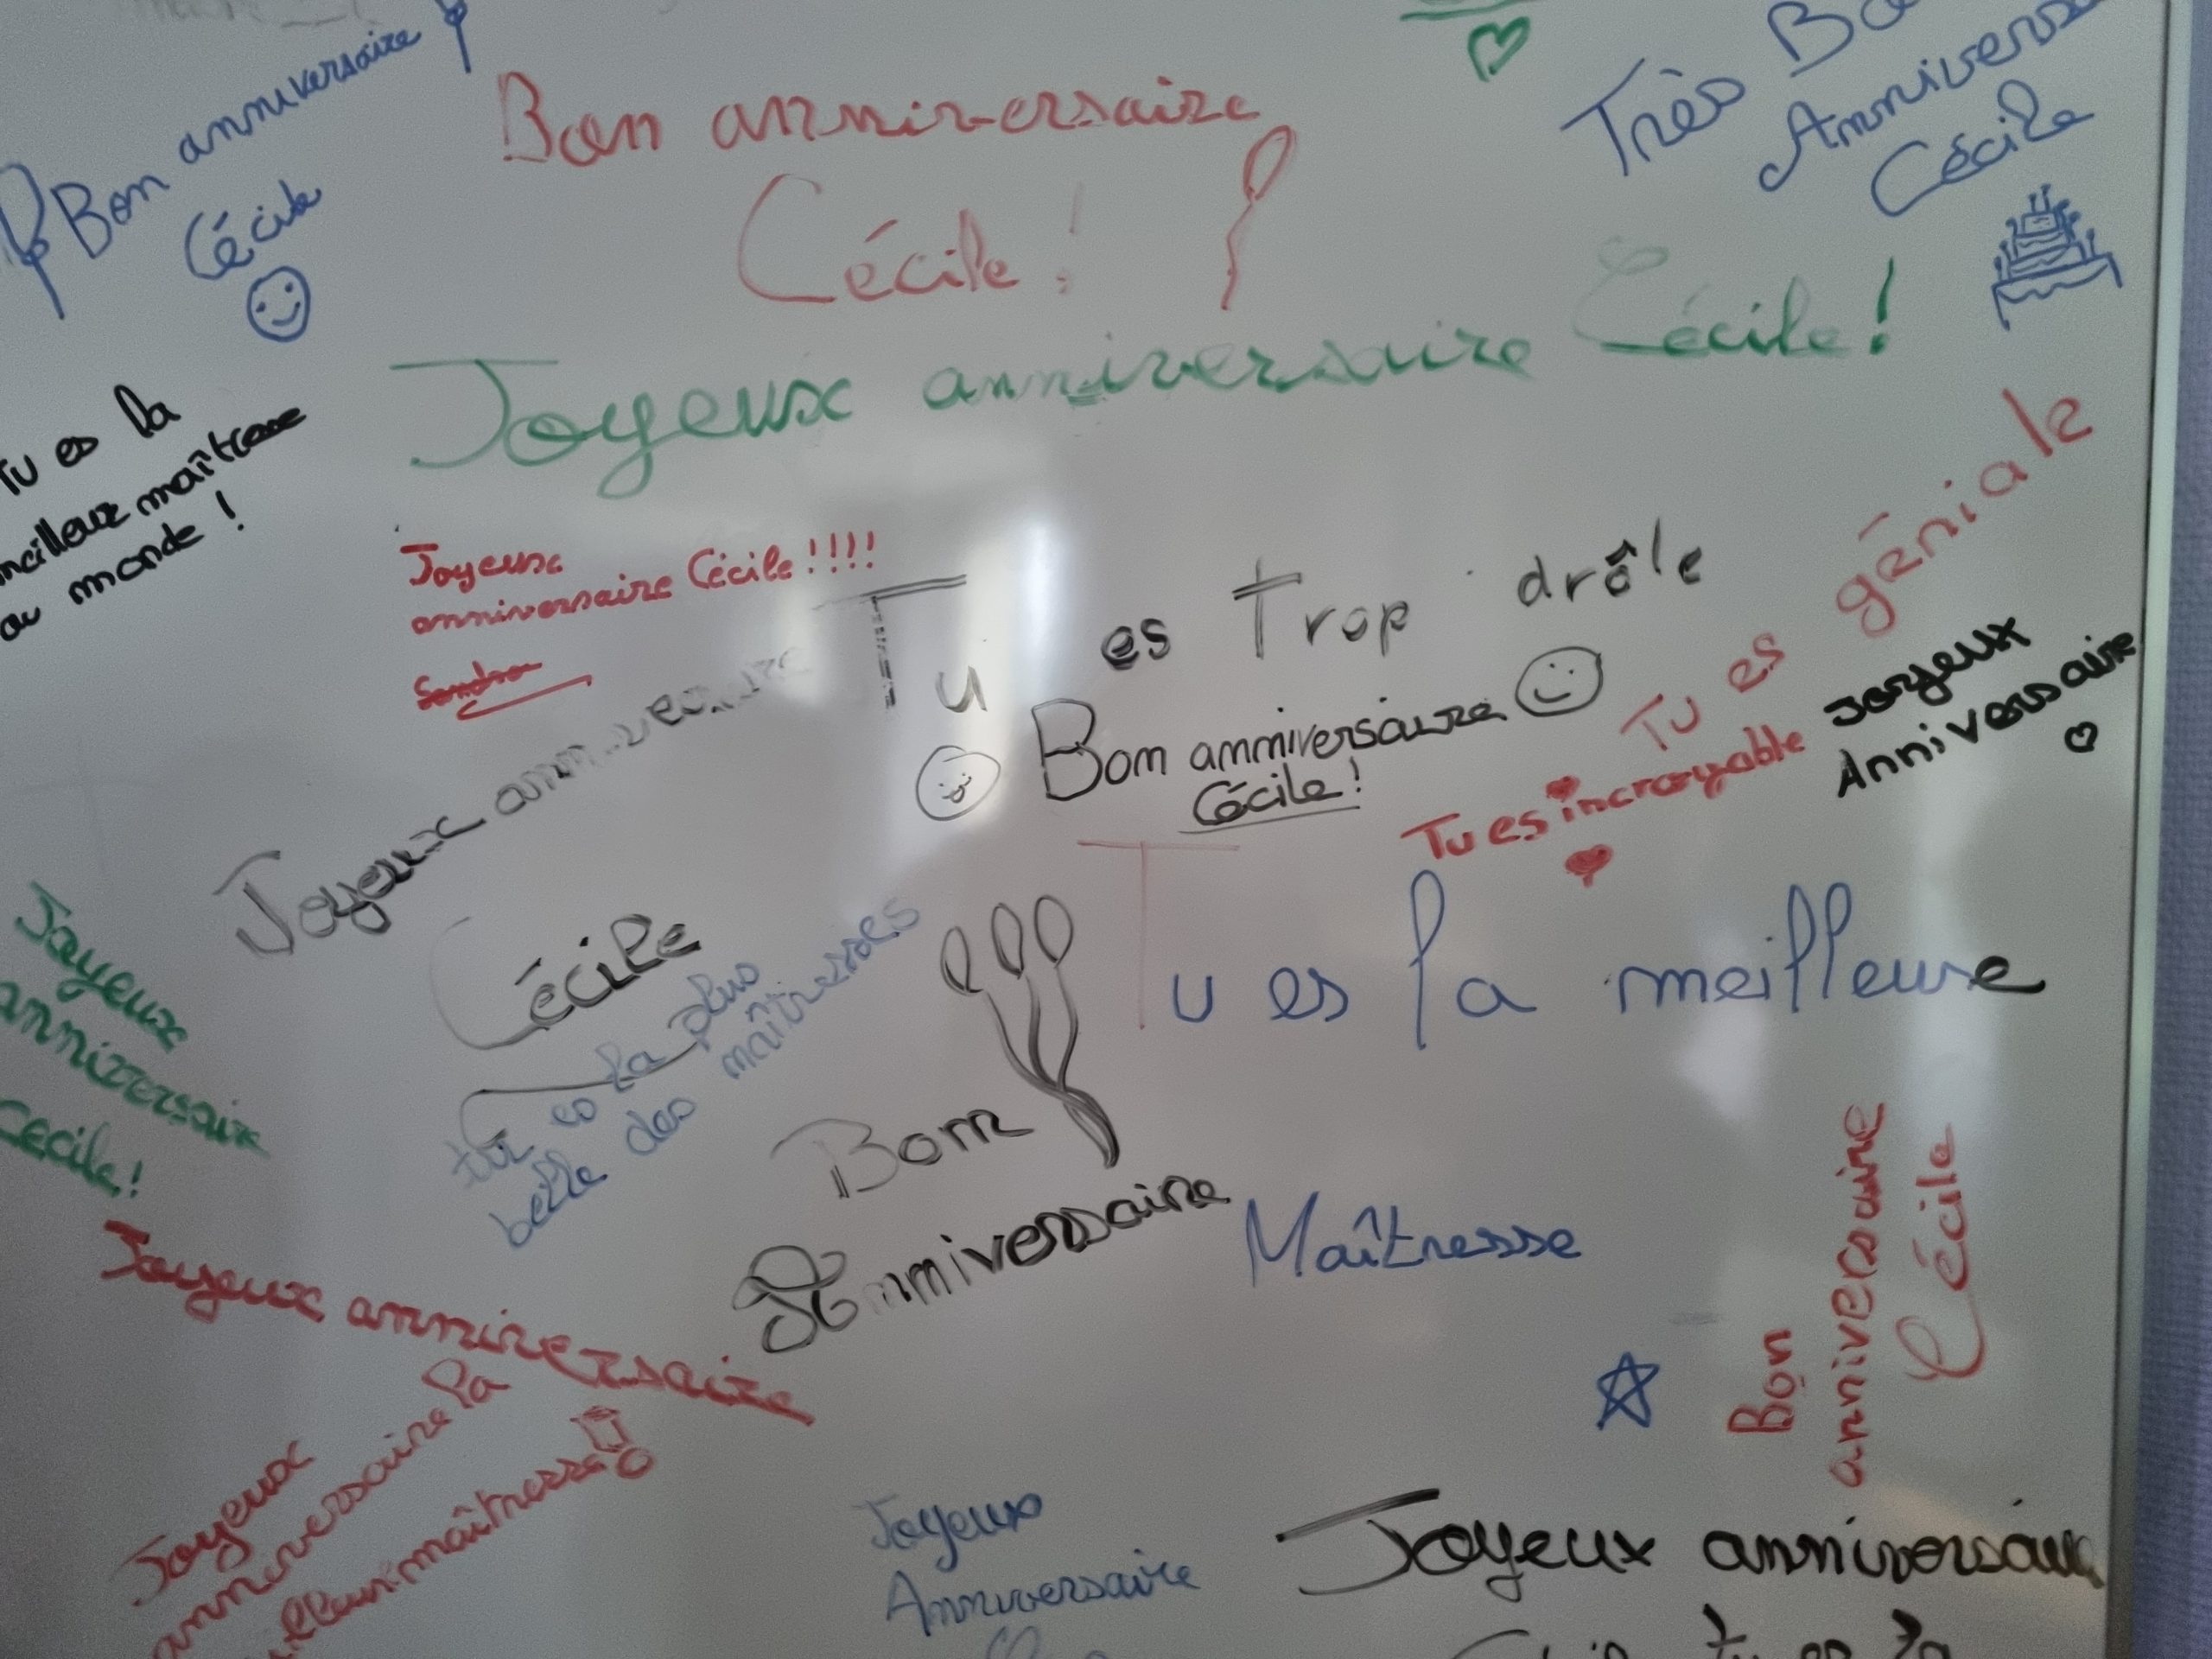 Bon anniversaire
Cécile
Bon anniversaire
Cécile !
Très
Cécile
Joyeux anniversaire Cécile !
Tu es la
maîtresse
au monde !
Joyeux
anniversaire Cécile !!!!
Sandra
Tu es Trop drôle
Bon anniversaire
Cécile !
Tu es géniale
Tu es incroyable
Joyeux
Anniversaire
Joyeux anniversaire
Cécile
tu es la plus
belle des maîtresses
Tu es la meilleure
Maîtresse
Joyeux
anniversaire
Cécile !
Bon
Anniversaire
Joyeux anniversaire
Joyeux
anniversaire la
maîtresse
Bon
anniversaire
Cécile
Joyeux
Anniversaire
Joyeux anniversaire
tu es la